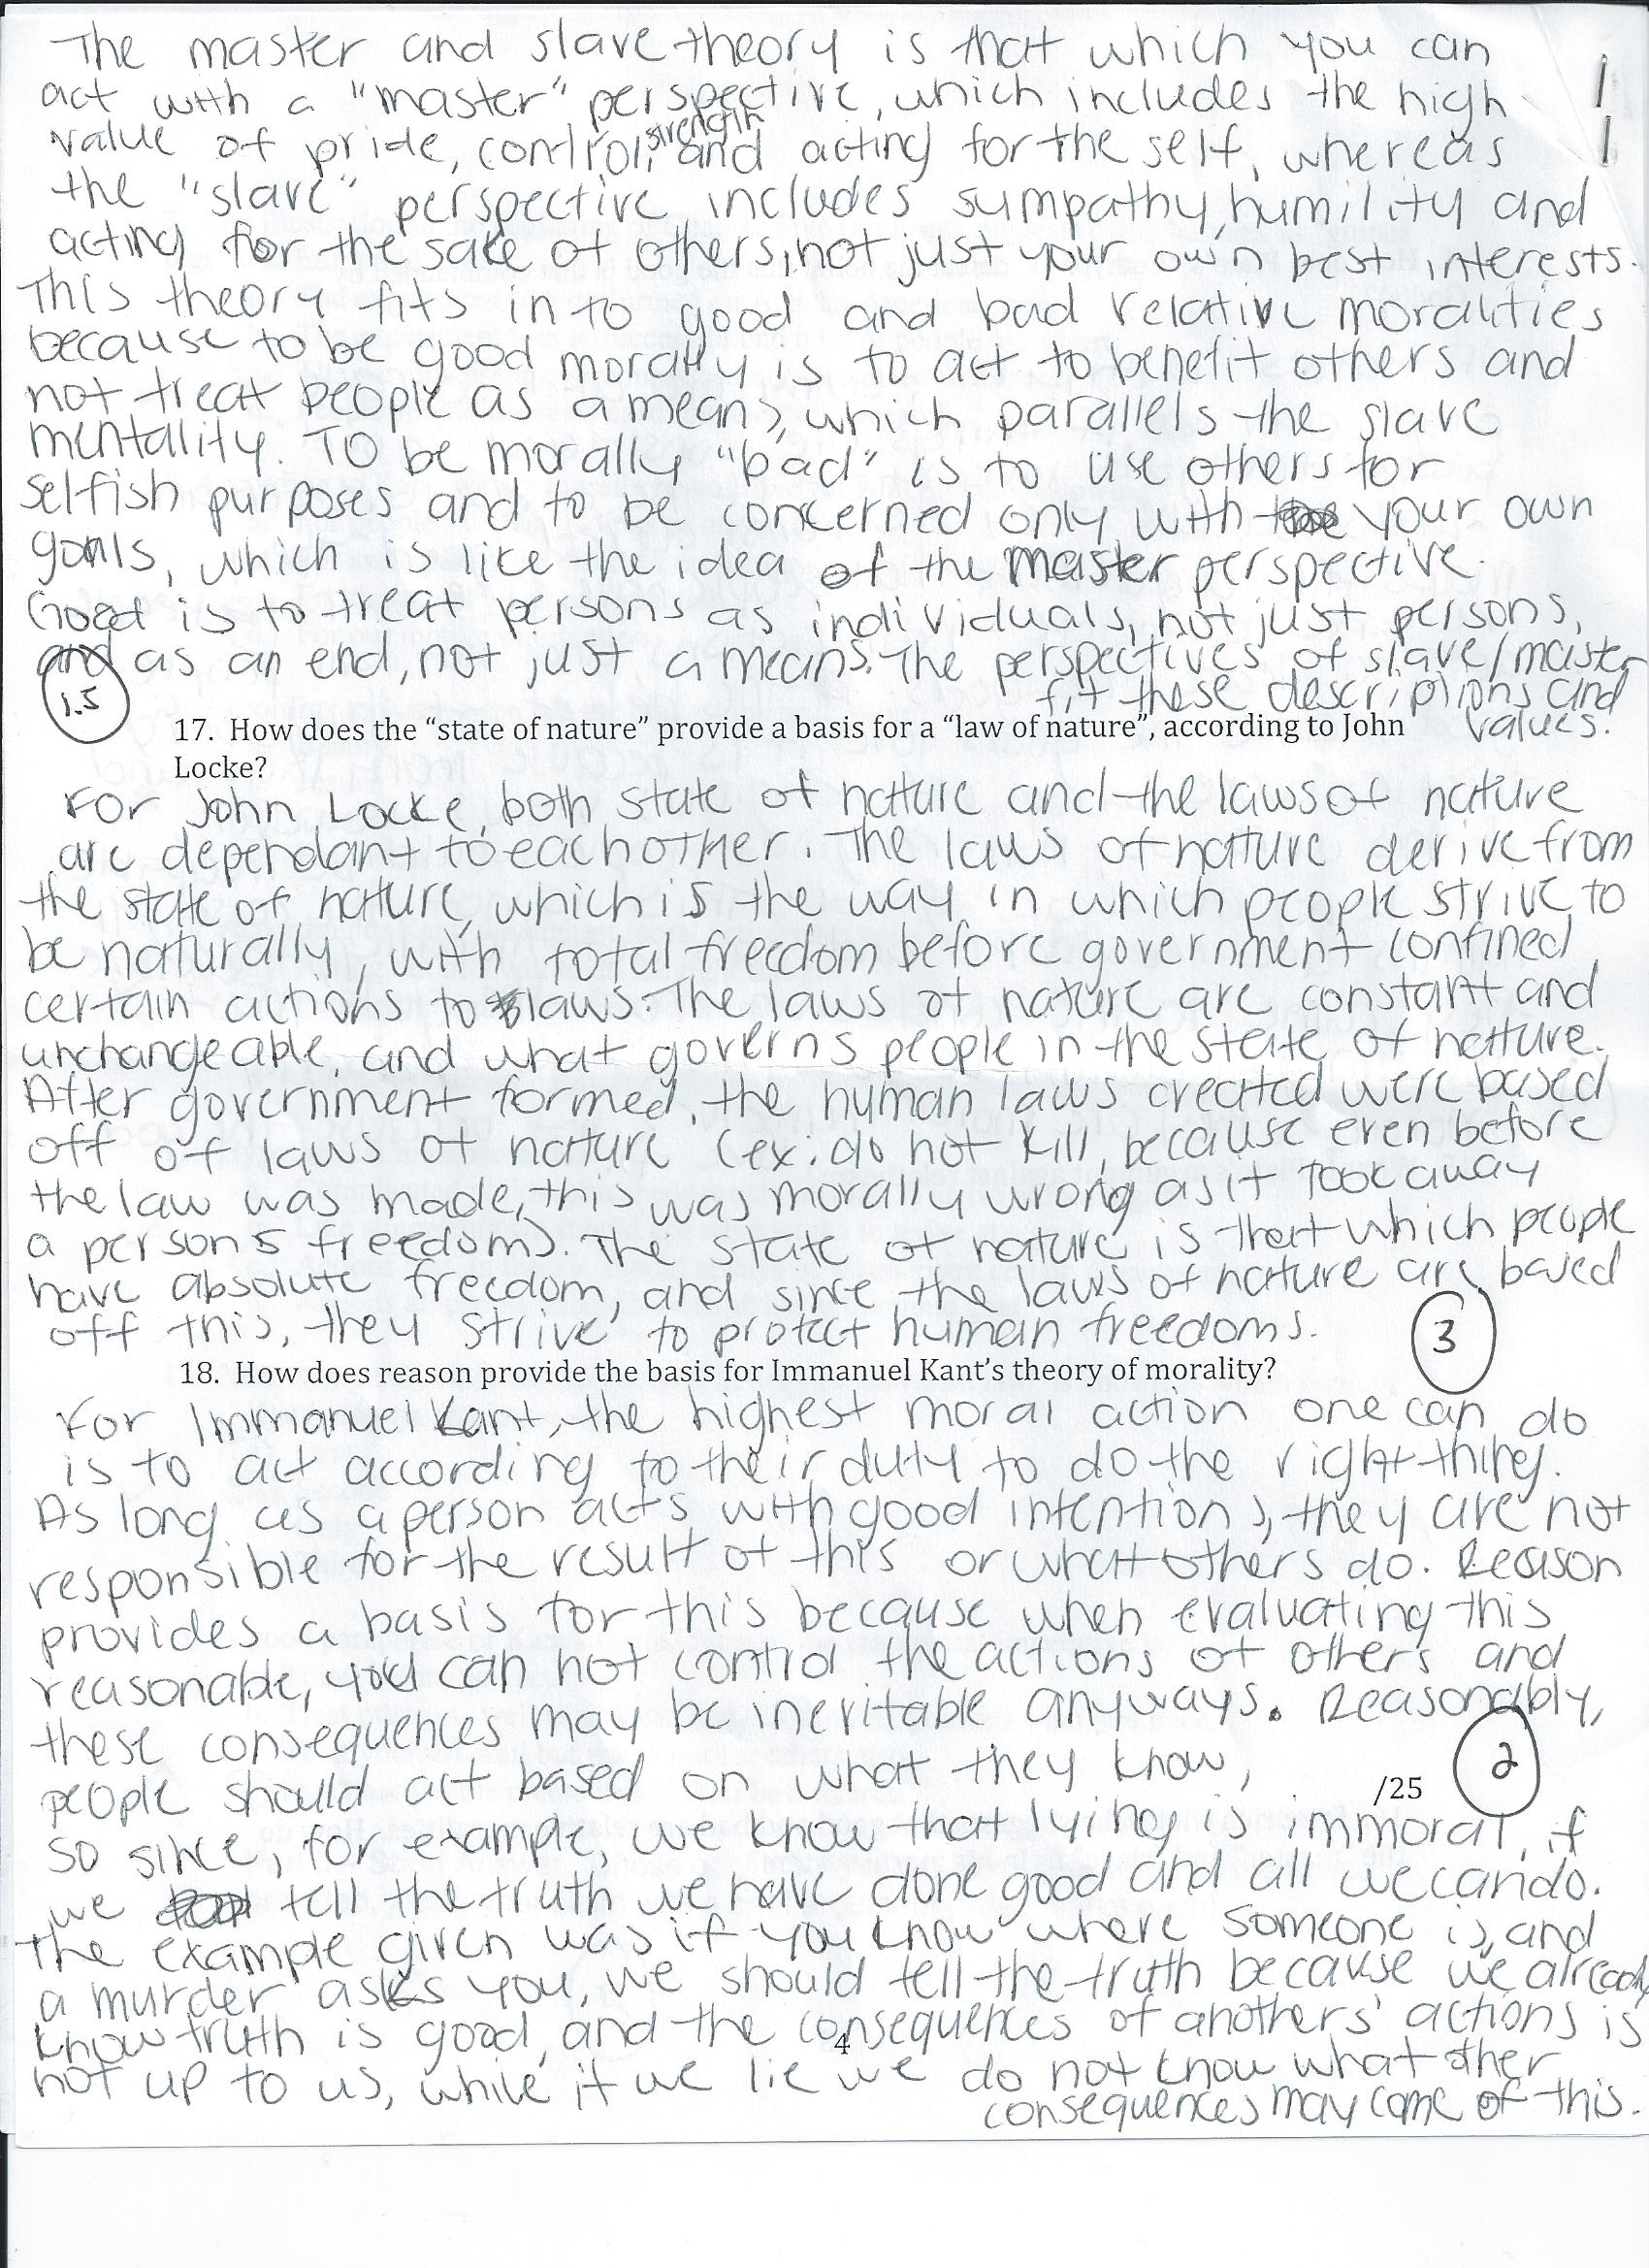 The master and slave theory is that which you can
act with a "master" perspective, which includes the high
value of pride, control, strength and acting for the self, whereas
the "slave" perspective includes sympathy, humility and
acting for the sake of others, not just your own best interests.
This theory fits in to good and bad relative moralities
because to be good morally is to act to benefit others and
not treat people as a means, which parallels the slave
mentality. To be morally "bad" is to use others for
selfish purposes and to be concerned only with your own
goals, which is like the idea of the master perspective.
Good is to treat persons as individuals, not just persons,
as an end, not just a means. The perspectives of slave/master
fit these descriptions and
values.
1.5
17. How does the “state of nature” provide a basis for a “law of nature”, according to John
Locke?
For John Locke, both state of nature and the laws of nature
are dependant to eachother. The laws of nature derive from
the state of nature, which is the way in which people strive to
be naturally, with total freedom before government confined
certain actions to laws. The laws of nature are constant and
unchangeable, and what governs people in the state of nature.
After government formed, the human laws created were based
off of laws of nature (ex: do not kill, because even before
the law was made, this was morally wrong as it took away
a persons freedom). The state of nature is that which people
have absolute freedom, and since the laws of nature are based
off this, they strive to protect human freedoms.
3
18. How does reason provide the basis for Immanuel Kant’s theory of morality?
For Immanuel Kant, the highest moral action one can do
is to act according to their duty to do the right thing.
As long as a person acts with good intentions, they are not
responsible for the result of this or what others do. Reason
provides a basis for this because when evaluating this
reasonable, you can not control the actions of others and
these consequences may be ineritable anyways. Reasonably,
people should act based on what they know,
/25
2
so since, for example, we know that lying is immoral, if
we tell the truth we have done good and all we can do.
The example given was if you know where someone is, and
a murder asks you, we should tell the truth because we already
know truth is good, and the consequences of anothers' actions is
4
not up to us, while if we lie we do not know what other
consequences may come of this.